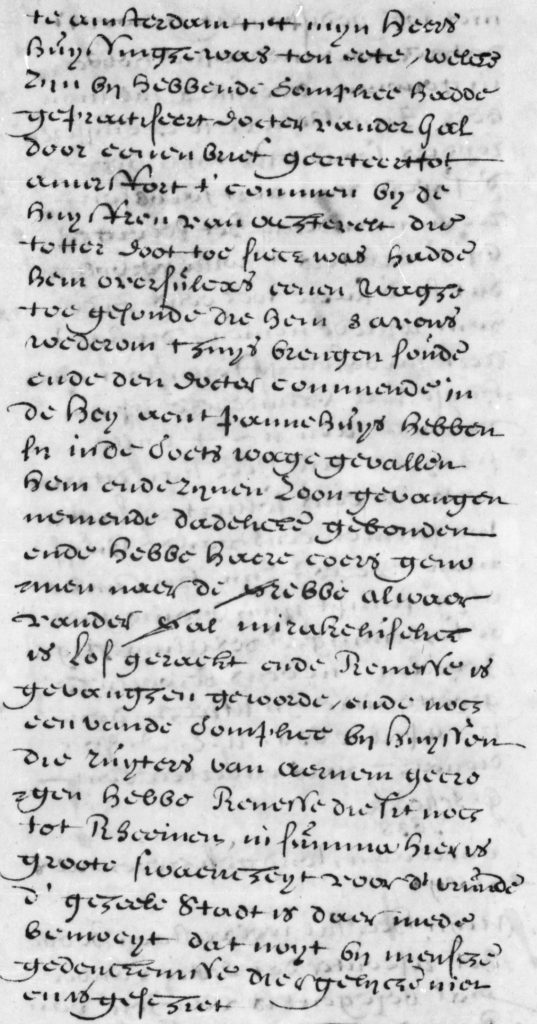 te amsterdam tot mijn heers
huyssinghe was ten eete, welcks
zijn bij hebbende Complice hadde
gepractiseert docter vander Gal
door eenen brief geexteert tot
amersffort t' commen bij de
huysffrou van achtevelt die
totter doot toe sieck was hadde
hem oversulcx eenen waghe
toe gesonde die hem s avens
wederom thuys brengen soude
ende den docter commende in
de heij aent pannehuijs hebben
sij inde Coets wage gevallen
hem ende zijnen Zoon gevangen
nemende dadelicke gebonden
ende hebbe haere coers geno
men naer de Grebbe alwaer
vander Gal mirakeluselick
is Los geraeckt ende Renesse is
gevanghen geworde, ende noch
een vande Complice bij huyssen
die ruyters van aernem gecre
gen hebbe Renesse die sit noch
tot Rheenen, in summa hier is
groote swaericheyt voor d' vriende
d' geheele Stadt is daer mede
bemoeyt dat noyt bij mensche
gedenckenisse diergelijcke niet
en is geschiet